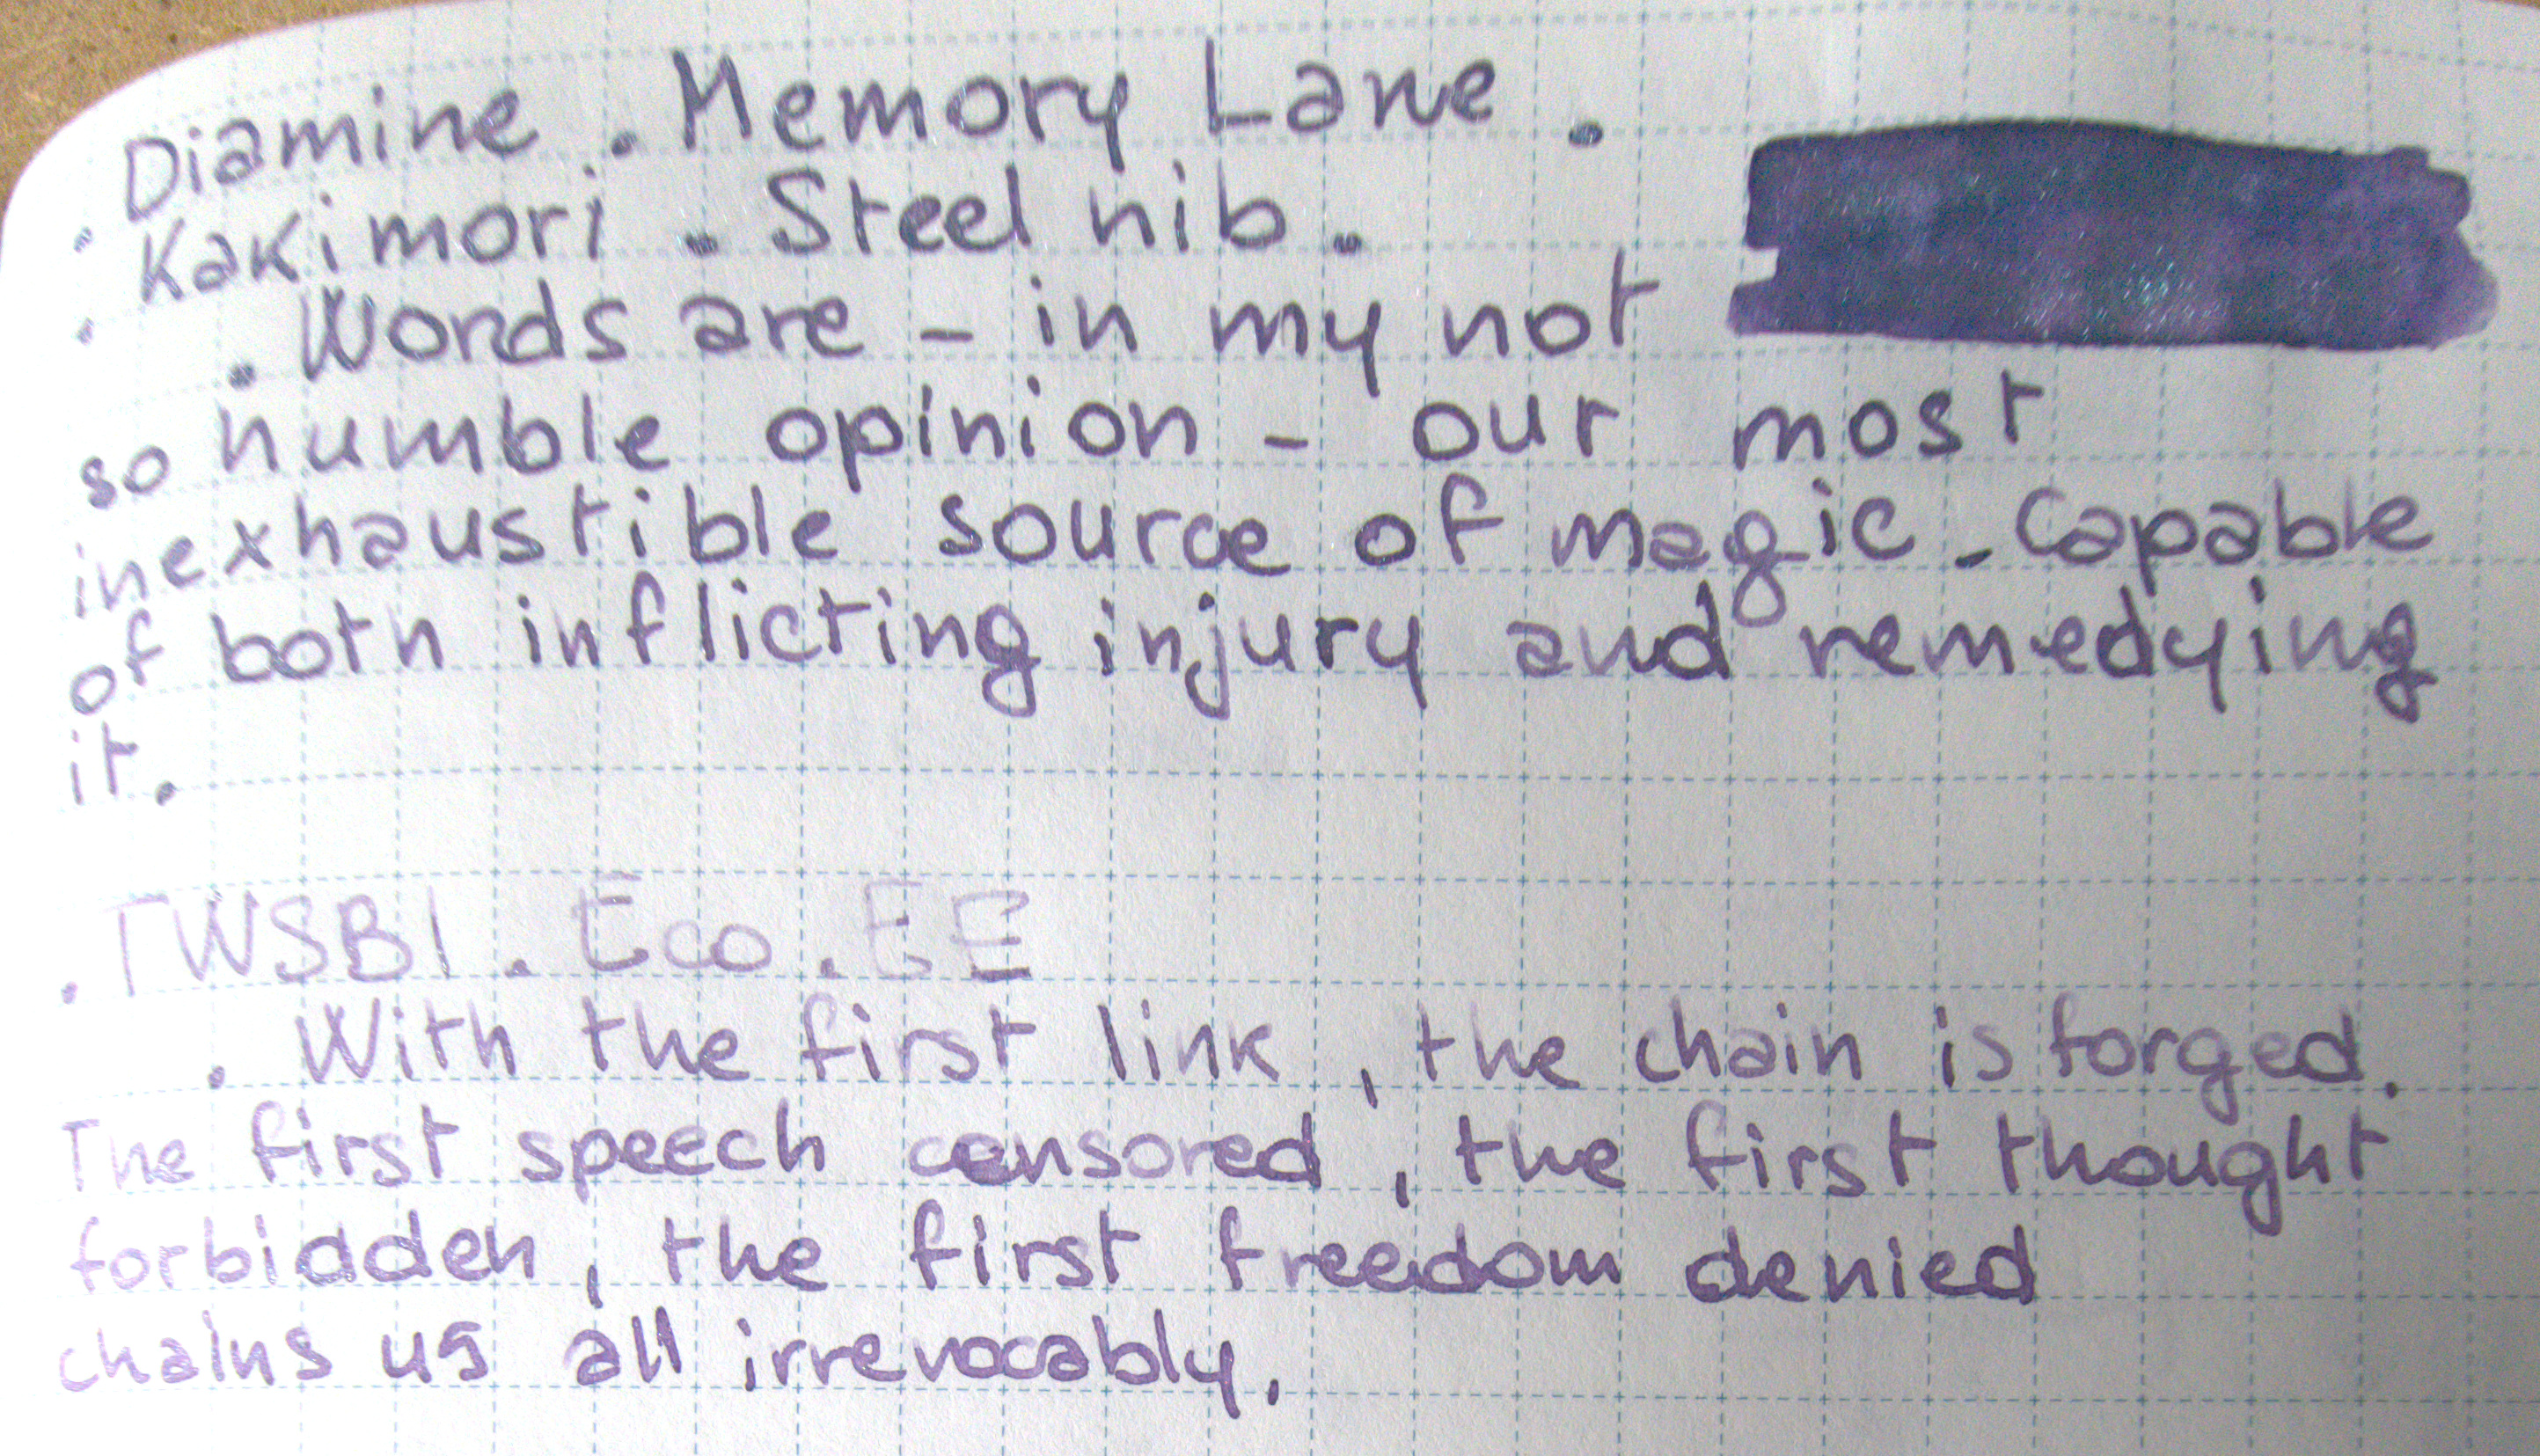 . Diamine . Memory Lane .
. Kakimori . Steel nib .
. Words are - in my not
so humble opinion - our most
inexhaustible source of magic - Capable
of both inflicting injury and remedying
it.
. TWSBI . Eco . EE
. With the first link , the chain is forged.
The first speech censored , the first thought
forbidden , the first freedom denied
chains us all irrevocably .